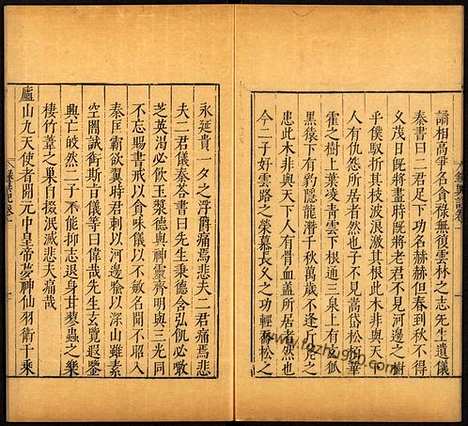 誦相高爭名貪祿無復雲林之志先生遺儀
秦書曰二君足下功名赫赫但春到秋不得
乂茂日旣將盡時旣將老君不見河邊之樹
乎僕馭折其枝波浪激其根此木非與天下
人有仇怨所居者然子不見嵩岱松柏華
霍之樹上葉凌青雲下根通三泉上有玄狐
黑猿下有豹隱龍潛千秋萬歲不逢斤斧之
患此木非與天下之人有骨血蓋所居者然也
今二子好雲路之榮慕長久之功輕喬松之
永延貴一夕之浮爵痛焉悲夫二君痛焉悲
夫二君儀秦荅書曰先生秉德含弘飢必噉
芝英渴必飲玉漿德與神靈齊明與三光同
不忘賜書戒以貪味儀以不敏名聞不昭入
秦匡霸欲翼時君刺以河邊喻以深山雖素
空闇誠銜斯旨儀等曰偉哉先生玄覽遐鑒
興亡皎然二子不能抑志退身甘蓼蟲之樂
棲竹葦之巢自掇泯滅悲夫痛哉
廬山九天使者開元中皇帝夢神仙羽衛千乘